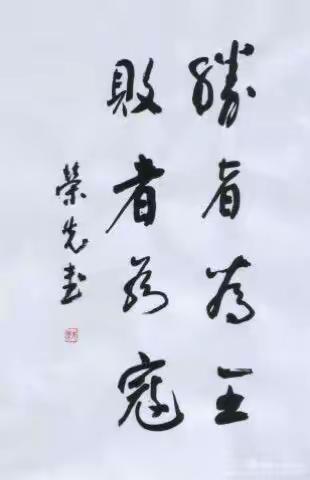 勝者為王
敗者為寇
榮先書